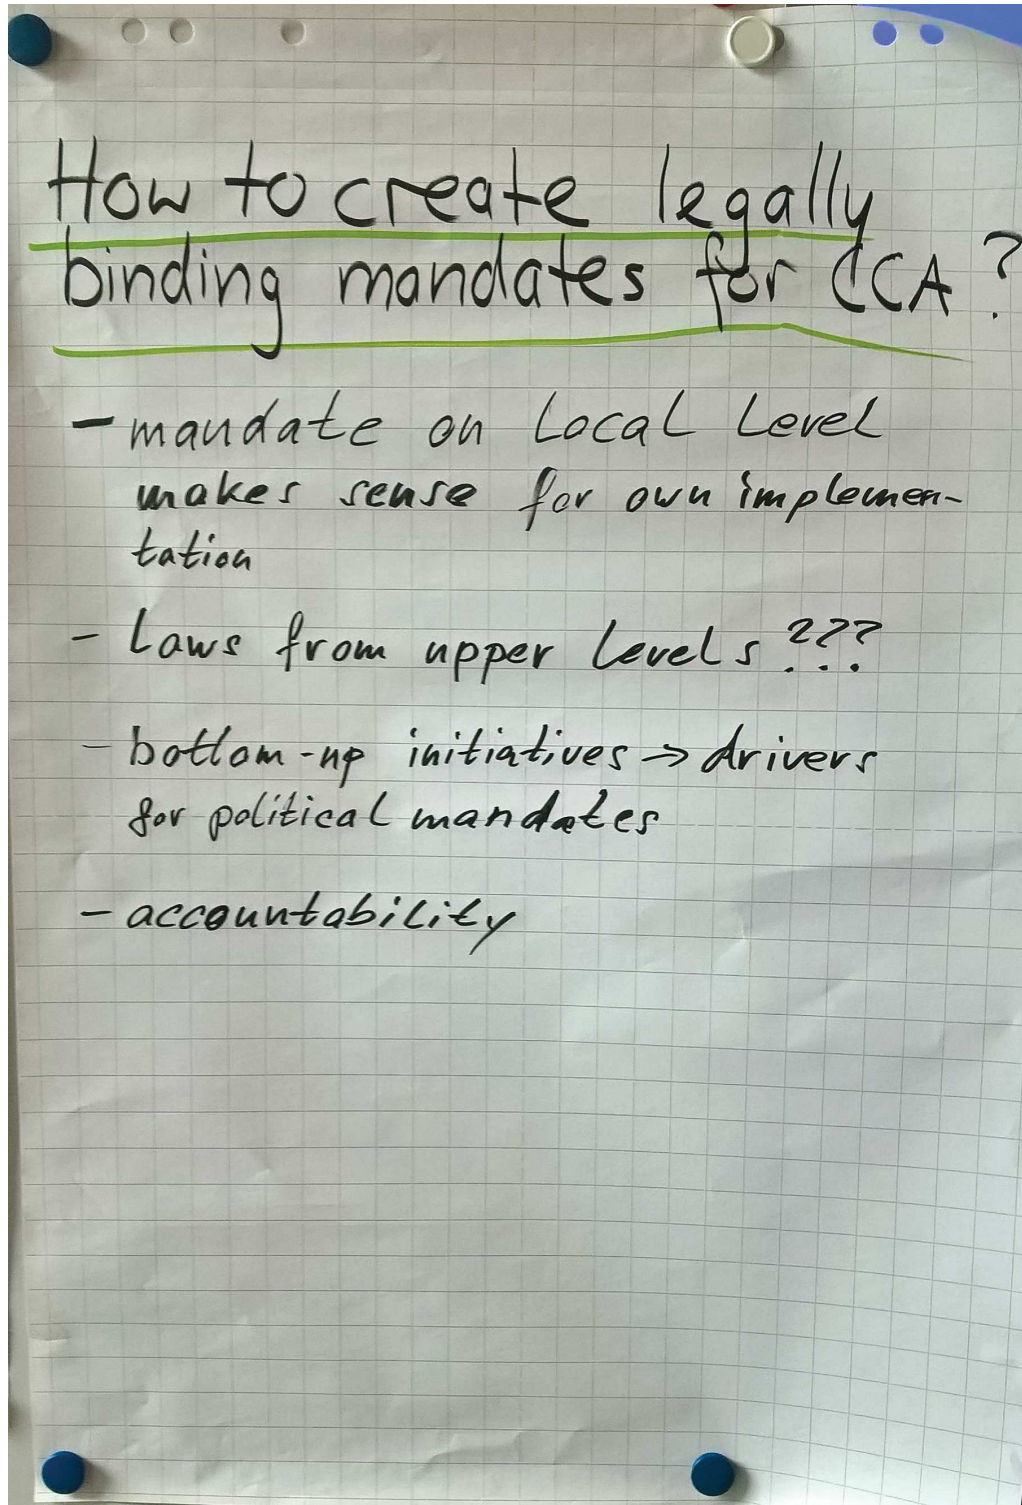 How to create legally
binding mandates for CCA?
- mandate on Local Level
makes sense for own implemen-
tation
- Laws from upper Levels ???
- bottom-up initiatives → drivers
for political mandates
- accountability